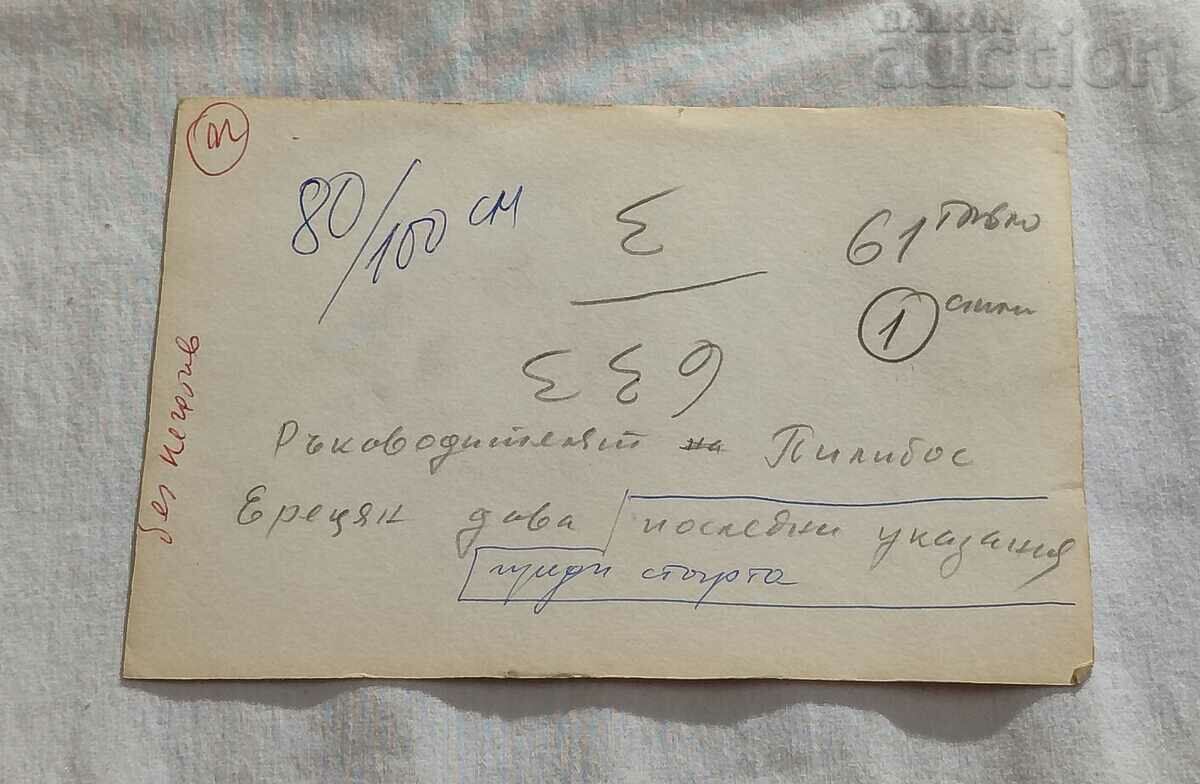 BALKAN
auction
80/100 см
61
1
без негатив
Ръководителят на Пилибос
Ерецян дава последни указания
преди старта